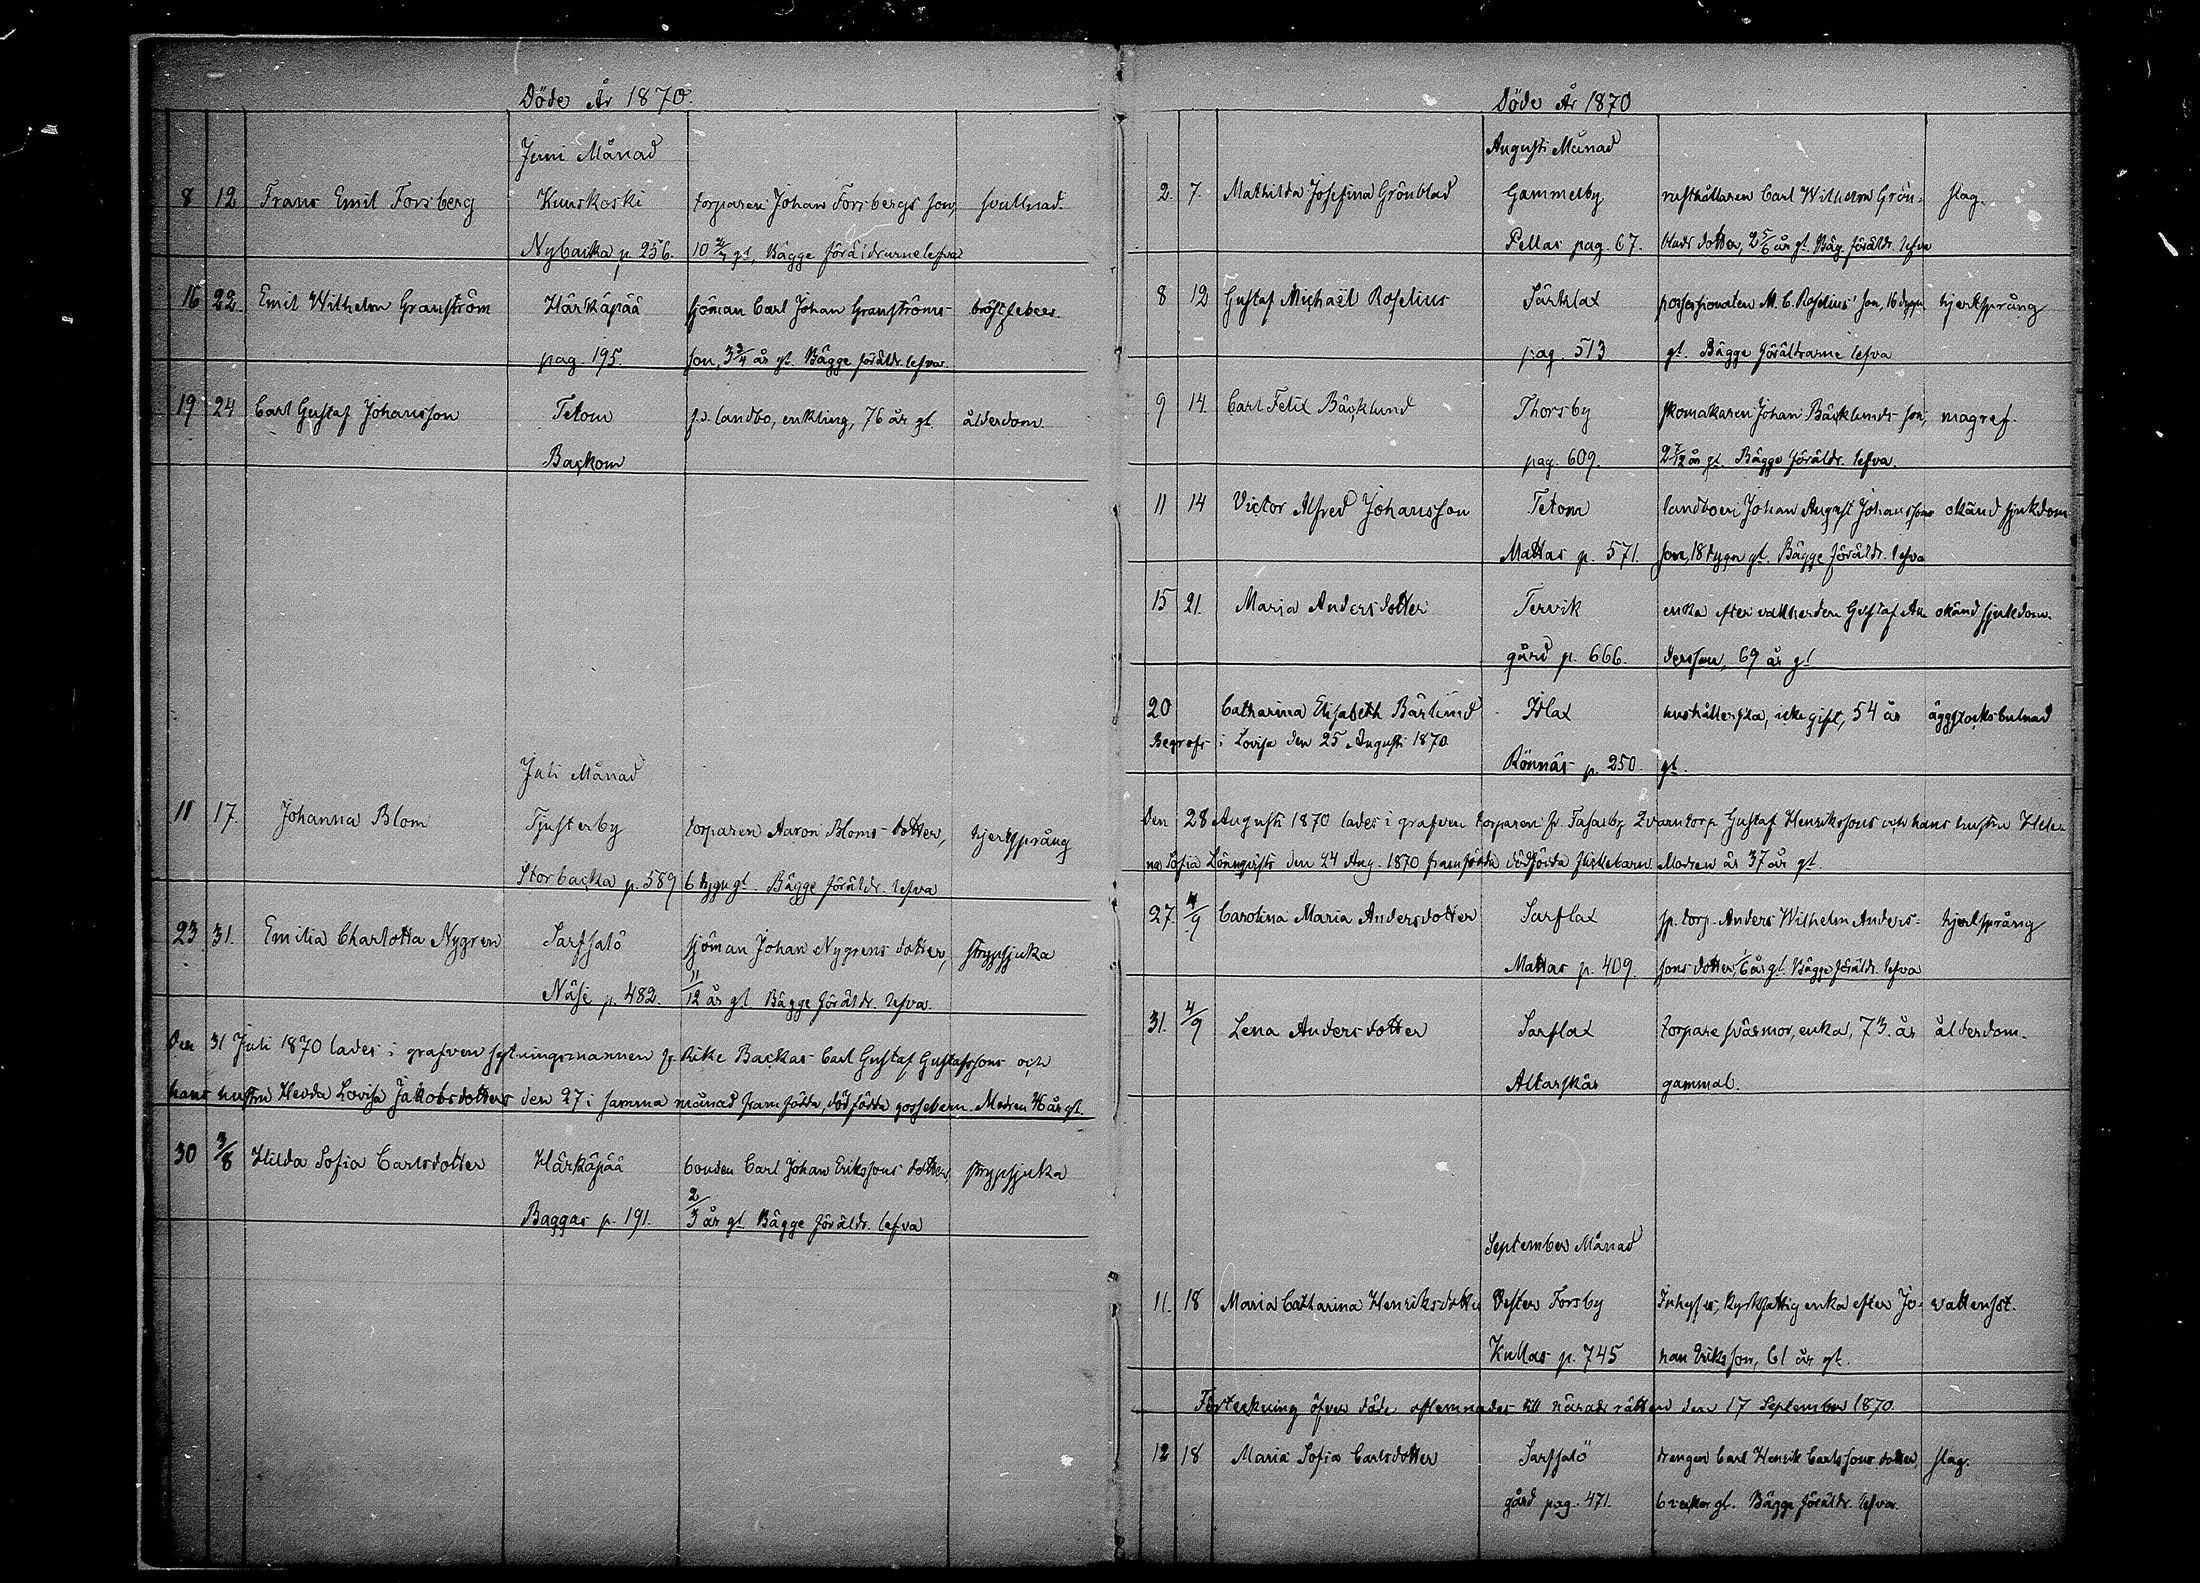 Döde År 1870.
Juni Månad
8 12 Frans Emil Forsberg Kuuskoski torparen Johan Forsbergs son, svullnad.
Nybacka p. 256. gl, Bägge föräldrarne lefva
16 22 Emil Wilhelm Granström Härkäpää sjöman Carl Johan Granströms bröstfeber.
pag. 195. son, 3 3/4 år gl. Bägge föräldr. lefva.
19 24 Carl Gustaf Johansson Tetom f.d. landbo, enkling, 76 år gl. ålderdom.
Backom
Juli Månad
11 17. Johanna Blom Tjusterby torparen Aaron Bloms dotter, hjertsprång
Storbacka p. 589 6 dygn gl. Bägge föräldr. lefva
23 31. Emilia Charlotta Nygren Sarfsalö sjöman Johan Nygrens dotter, strypsjuka
Näse p. 482. 11/12 år gl Bägge föräldr. lefva.
Den 31 Juli 1870 lades i grafven sytningsmannen fr. Rike Backas Carl Gustaf Gustafssons och
hans hustru Hedda Lovisa Jakobsdotters den 27 i samma månad framfödda, dödfödda gossebarn. Modren år gl.
30 3/8 Hilda Sofia Carlsdotter Härkäpää bonden Carl Johan Erikssons dotter strypsjuka
Baggas p. 191. 2/3 år gl Bägge föräldr. lefva
Döde År 1870
Augusti Månad
2. 7. Mathilda Josefina Grönblad Gammelby rusthållaren Carl Wilhelm Grön- slag.
Pellas pag. 67. blads dotter, 2 5/6 år gl. Bäg. föräldr. lefva
8 12 Gustaf Michaël Roselius Särklax possessionaten M. C. Roselius' son, 16 dygn hjertsprång
pag. 513 gl. Bägge föräldrarne lefva
9 14. Carl Felix Bäcklund Thorsby skomakaren Johan Bäcklunds son, magref.
pag. 609. 2 7/12 år gl. Bägge föräldr. lefva.
11 14 Victor Alfred Johansson Tetom landboen Johan August Johanssons okänd sjukdom
Mattas p. 571. son, 18 dygn gl. Bägge föräldr. lefva
15 21. Maria Andersdotter Tervik enka efter vallherden Gustaf An- okänd sjukdom.
gård p. 666. dersson, 69 år gl
20 Catharina Elisabeth Bärlund Isnäs hushållerska, icke gift, 54 år äggstocksbulnad
Begrofs i Lovisa den 25 Augusti 1870
Rönnäs p. 250. gl.
Den 28 Augusti 1870 lades i grafven torparen fr. Gustaf Henrikssons och hans hustru Hele-
na Sofia Lönnqvists den 24 Aug. 1870 framfödda dödfödda flickebarn. Modren är 37 år gl.
27. 4/9 Carolina Maria Andersdotter Sarflax sp. torp. Anders Wilhelm Anders- hjertsprång
Mattas p. 409. sons dotter, 6 år gl. Bägge föräldr. lefva
31. 4/9 Lena Andersdotter Sarflax torpare svärmor, enka, 73. år ålderdom.
Altarskär gammal.
September Månad
11. 18 Maria Catharina Henriksdotter Vester Forsby Inhyses, kyrkfattig enka efter Jo- vattensot.
Kullas p. 745 han Eriksson, 61 år gl.
Förteckning öfver döde aflemnades till häradsrätten den 17 September 1870.
12 18 Maria Sofia Carlsdotter Sarfsalö drengen Carl Henrik Carlssons dotter, slag.
gård pag. 471. 6 veckor gl. Bägge föräldr. lefva.